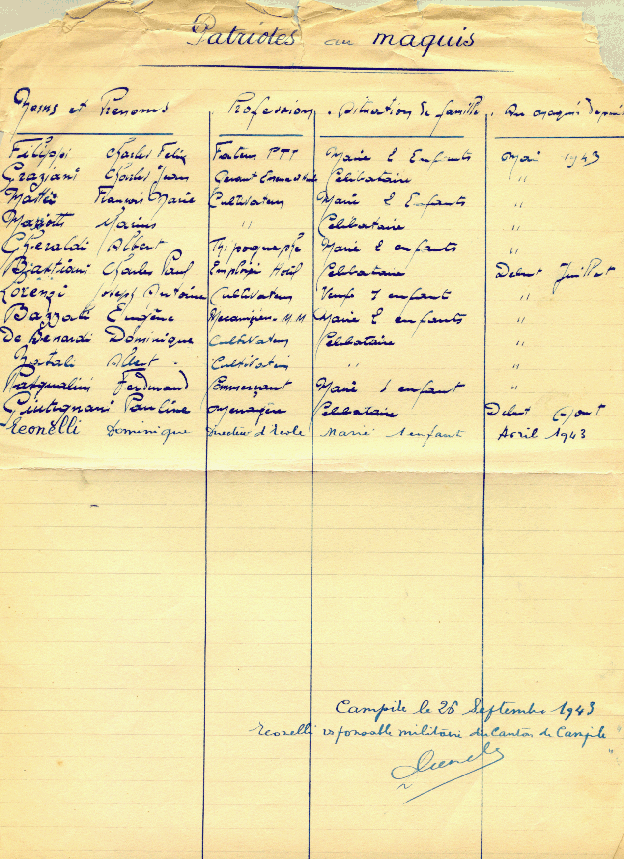 Patriotes au maquis
Noms et Prenoms Profession Situation de famille Au maquis depuis
Filippi Charles Felix Facteur PTT Marié 2 Enfants Mai 1943
Graziani Charles Jean Gerant Celibataire "
Mattei François Marie Cultivateur Marié 2 Enfants "
Marius " Celibataire "
Gheraldi Albert Typographe Marié 2 enfants "
Bastiani Charles Paul Employé Hotel Celibataire Debut Juillet
Lorenzi Antoine Cultivateur Veuf 1 enfant "
Bazzali Eugène Mecanicien M.M Marié 2 enfants "
De Benardi Dominique Cultivateur Celibataire "
Natali Albert Cultivateur " "
Pasqualini Ferdinand Commerçant Marié 1 enfant
Pauline Menagère Celibataire Debut Aout
Leonelli Dominique Directeur d'Ecole Marié 1 enfant Avril 1943
Campile le 26 Septembre 1943
Leonelli responsable militaire du Canton de Campile